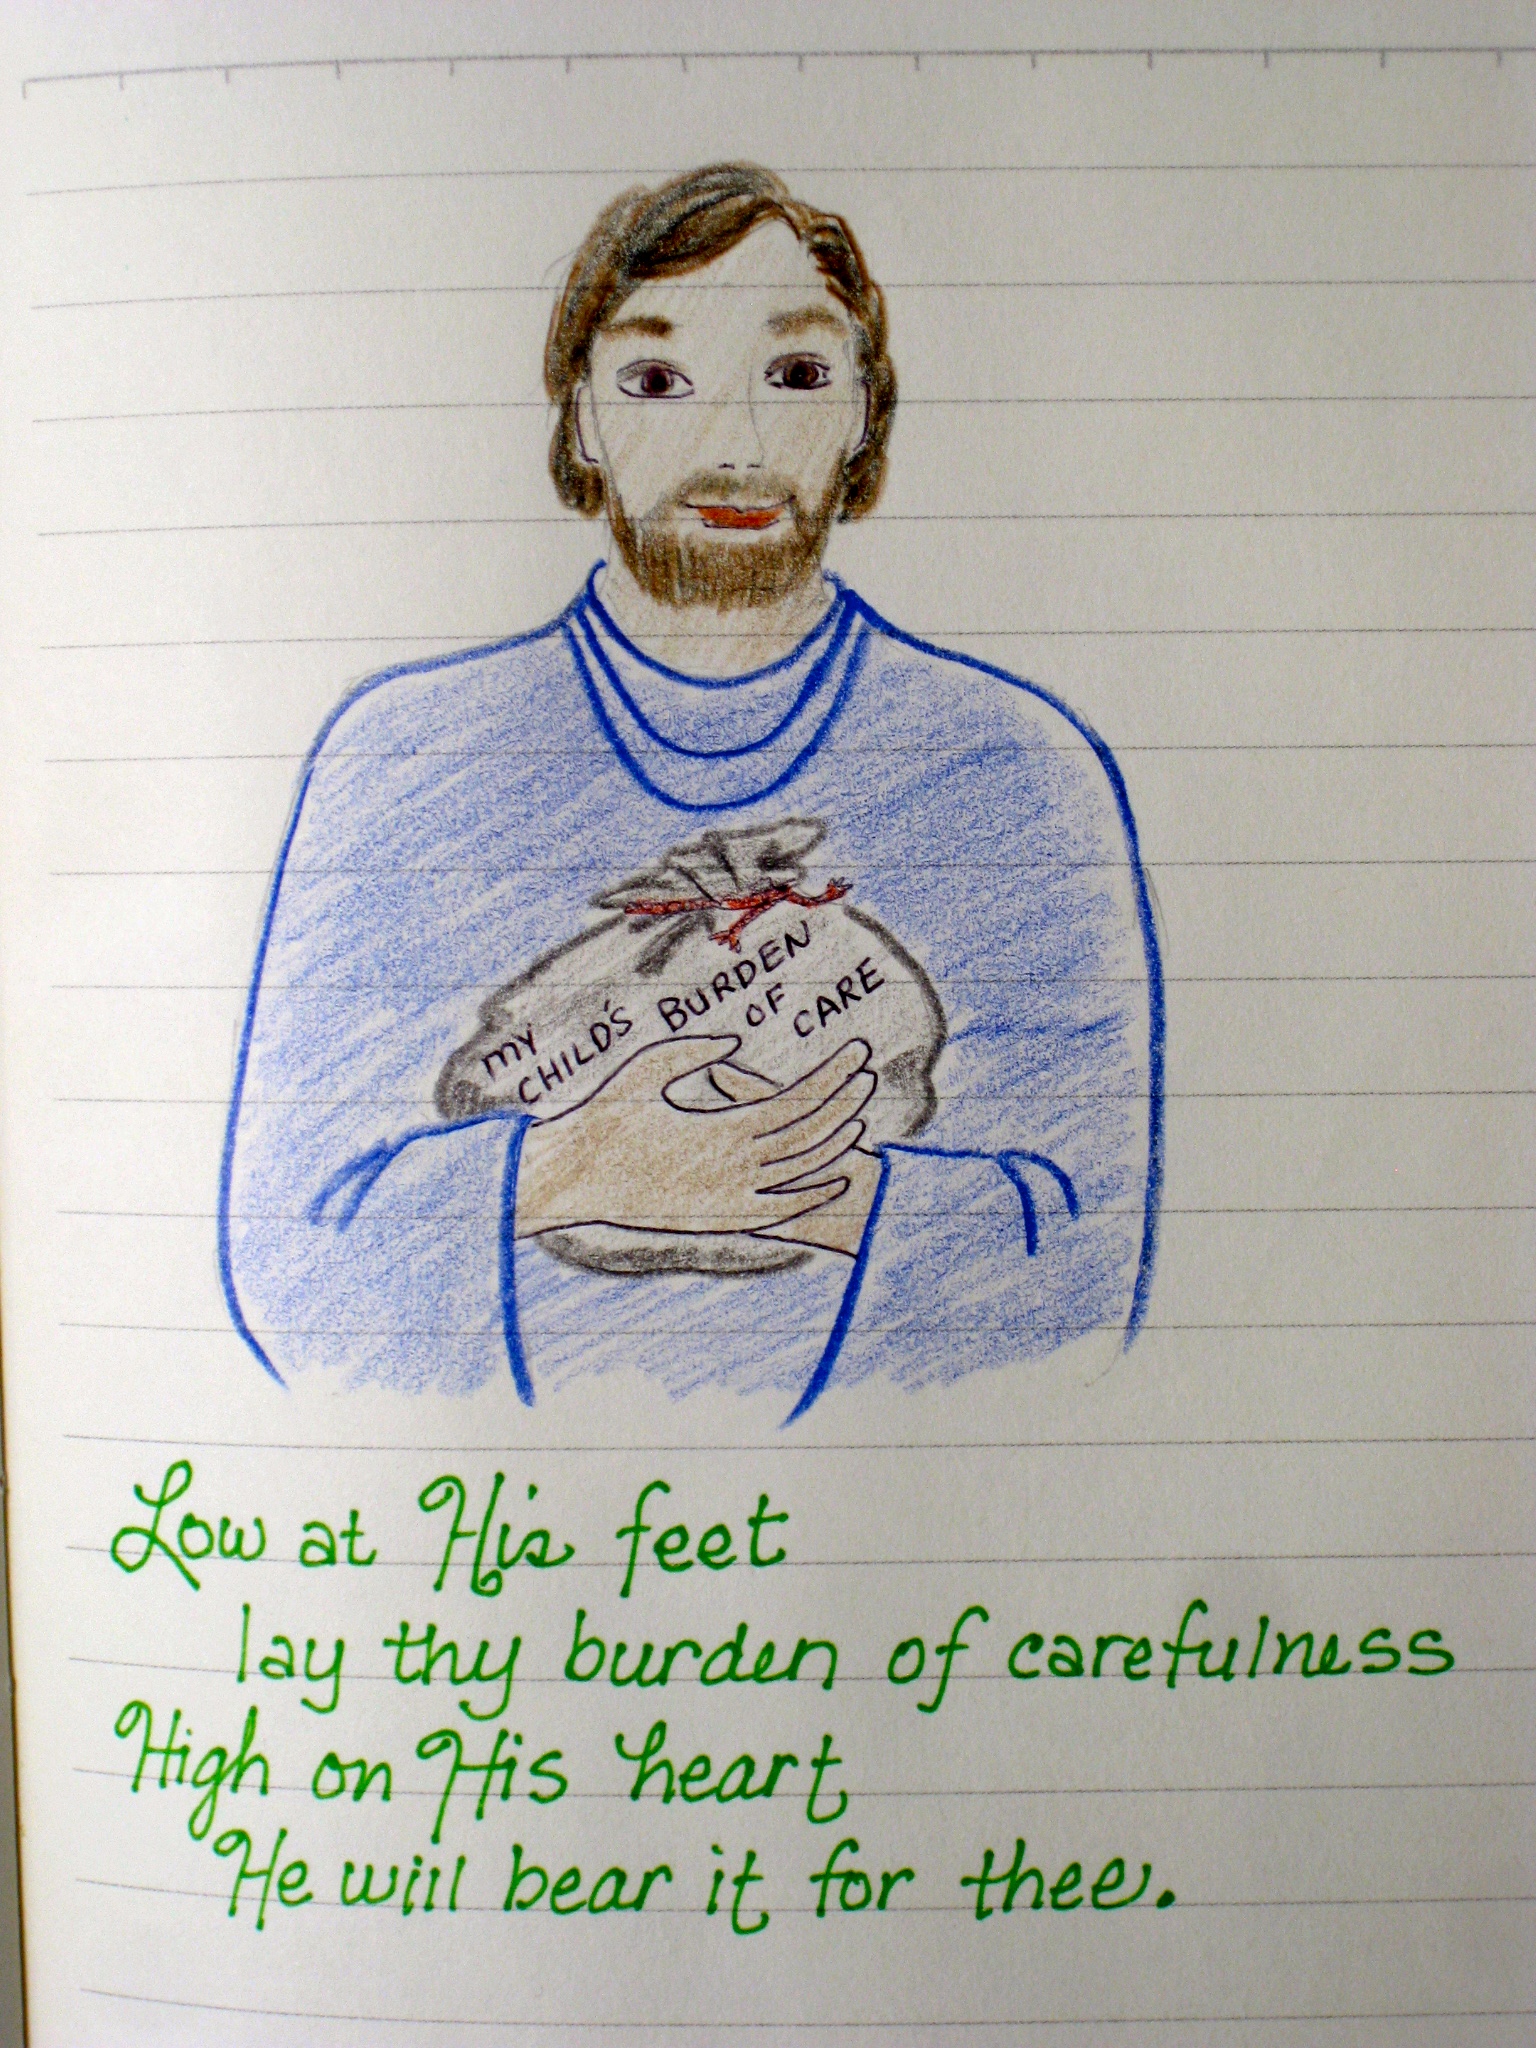 MY
CHILD'S BURDEN
OF
CARE
Low at His feet
lay thy burden of carefulness
High on His heart
He will bear it for thee.